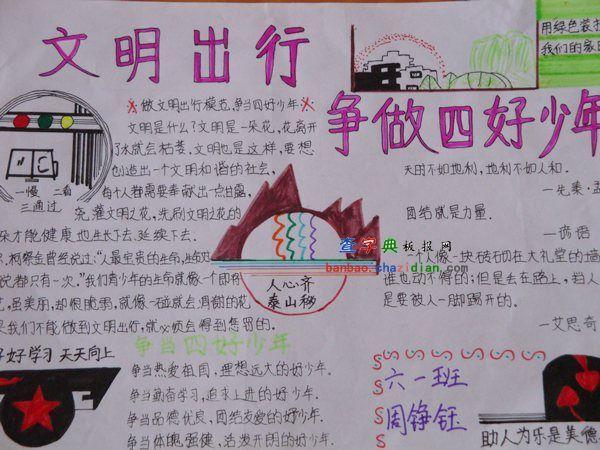 文明出行
用绿色装扮
我们的家园
争做四好少年
做文明出行模范,争当四好少年
文明是什么?文明是一朵花,花离开
了水就会枯萎。文明也是这样,要想
创造出一个文明和谐的社会,
每个人都需要奉献出一点甘露,
浇灌文明之花,洗刷文明的花
朵才能健康地生长下去、延续下去。
人最宝贵的生命,生命
说都只有一次."我们青少年的生命就像一个即
虽美丽,却很脆弱,就像一碰就会凋谢的花
是我们不能做到文明出行,就必须会得到惩罚的。
一慢 二看
三通过
人心齐
泰山移
天时不如地利,地利不如人和.
—先秦·孟
团结就是力量.
—谚语
一个人像一块砖砌在大礼堂的墙
谁也动不得的;但是丢在路上,挡人
是要被人一脚踢开的.
—艾思奇
查字典板报网
banbao.chazidian.com
好好学习 天天向上
争当四好少年
争当热爱祖国,理想远大的好少年.
争当勤奋学习,追求上进的好少年.
争当品德优良,团结友爱的好少年.
争当体魄强健,活泼开朗的好少年.
六一班
周铮钰
助人为乐是美德